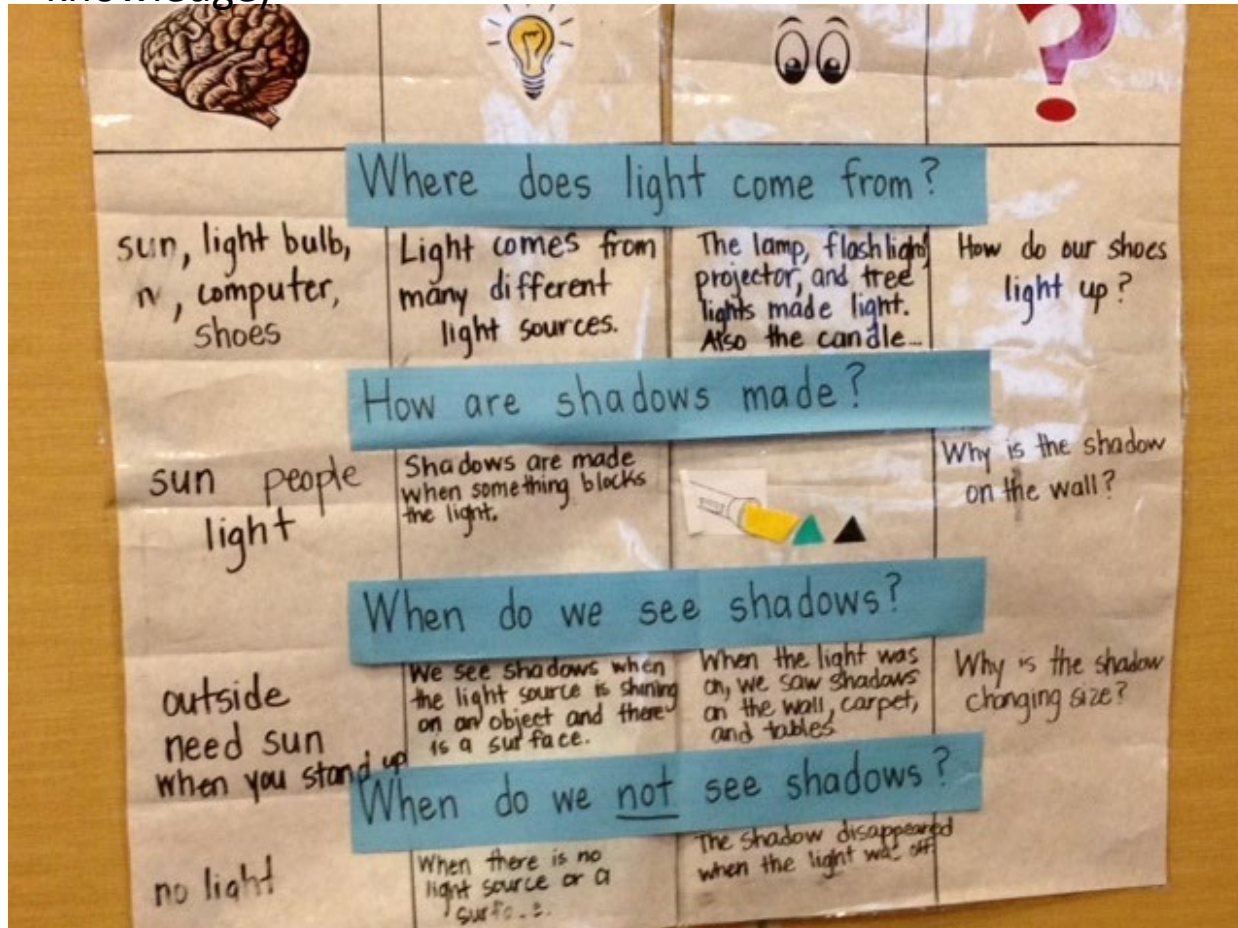 Where does light come from?
sun, light bulb,
computer,
shoes
Light comes from
many different
light sources.
The lamp, flashlight,
projector, and tree
lights made light.
Also the candle...
How do our shoes
light up?
How are shadows made?
sun people
light
Shadows are made
when something blocks
the light.
Why is the shadow
on the wall?
When do we see shadows?
outside
need sun
when you stand up
We see shadows when
the light source is shining
on an object and there
is a surface.
When the light was
on, we saw shadows
on the wall, carpet,
and tables
Why is the shadow
changing size?
When do we not see shadows?
no light
When there is no
light source or a
The shadow disappeared
when the light was off